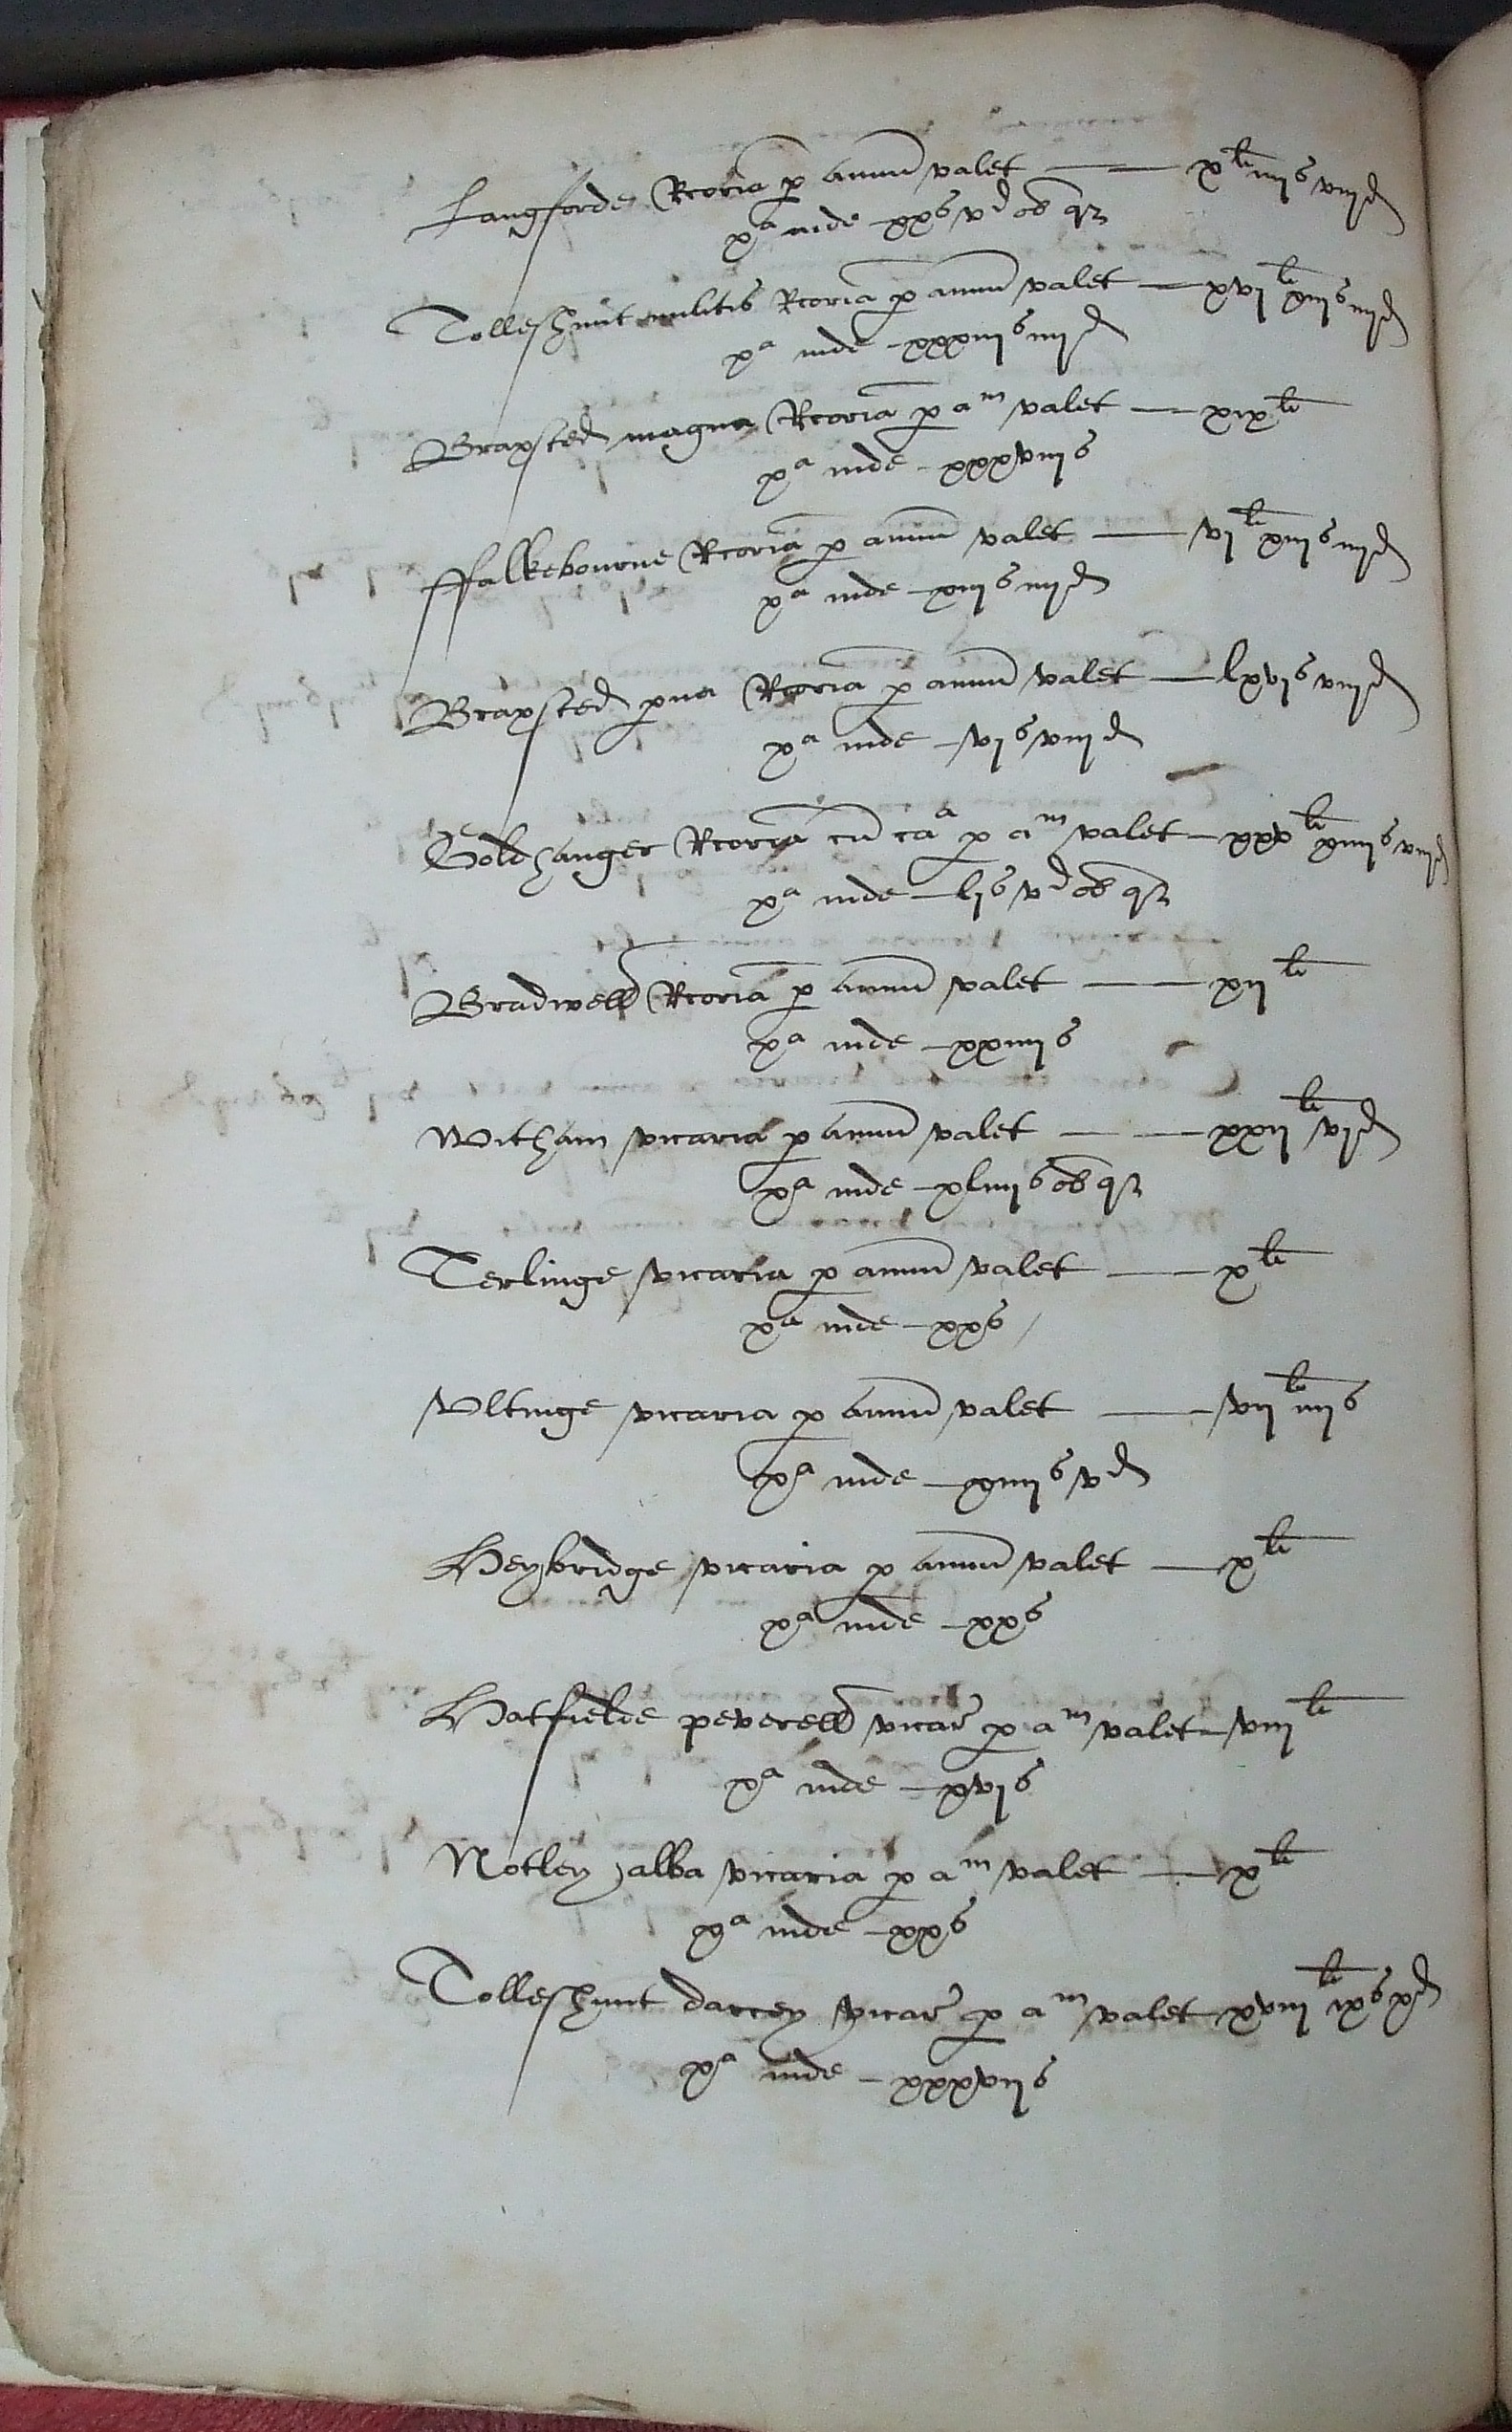 Langforde Rcoria p annu valet — x li iiij s viij d
xa inde xx s v d ob qz
Tolleshunt militis Rcoria p annu valet — xvj li xiij s iiij d
xa inde xxxiij s iiij d
Braxsted magna Rcoria p am valet — xix li
xa inde xxxviij s
ffalkebourne Rcoria p annu valet — vj li xiij s iiij d
xa inde xiij s iiij d
Braxsted pua Rcoria p annu valet — lxvj s viij d
xa inde vj s viij d
Goldhanger Rcoria cu caa p am valet — xxv li xiiij s viij d
xa inde — lj s v d ob qz
Bradwell Rcoria p annu valet — xij li
xa inde — xxiiij s
Witham vicaria p annu valet — xxij li vj d
xa inde xliiij s ob qz
Terlinge vicaria p annu valet — x li
xa inde — xx s /
Vltinge vicaria p annu valet — vij li iiij s
xa inde — xiiij s v d
Heybridge vicaria p annu valet — x li
xa inde — xx s
Hatfielde peverell vicar p am valet — viij li
xa inde — xvj s
Notley alba vicaria p am valet — x li
xa inde — xx s
Tolleshunt darcey vicar p am valet xviij li ix s x d
xa inde — xxxvij s